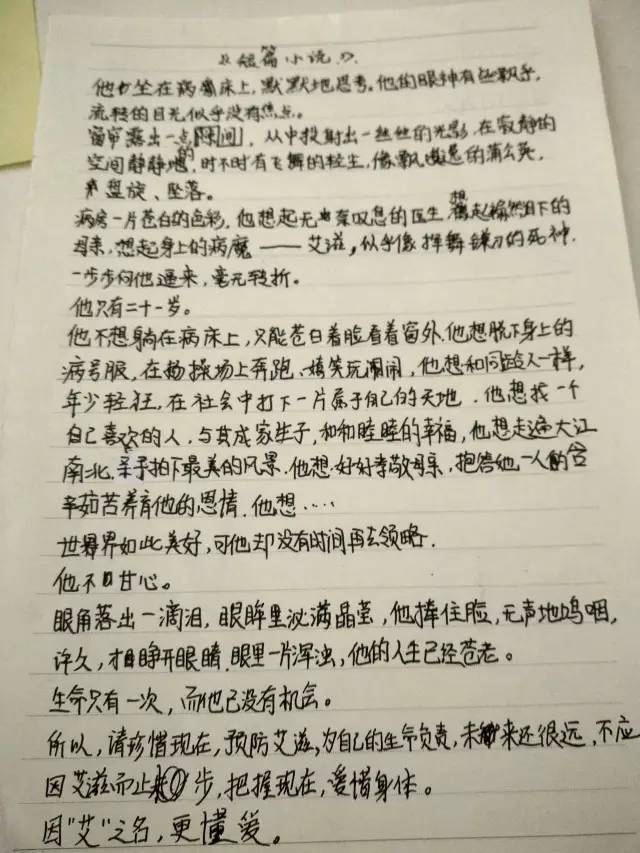 《短篇小说》
他坐在病床上,默默地思考。他的眼神有些飘乎,
流转的目光似乎没有焦点。
窗帘露出一点间,从中投射出一丝丝的光影,在寂静的
空间静静地,时不时有飞舞的粒尘,像飘忽的蒲公英,
盘旋、坠落。
病房一片苍白的色彩,他想起无奈叹息的医生,想起潸然泪下的
母亲,想起身上的病魔——艾滋,似乎像挥舞镰刀的死神,
一步步向他逼来,毫无转折。
他只有二十一岁。
他不想躺在病床上,只能苍白着脸看着窗外,他想脱下身上的
病号服,在操场上奔跑、嬉笑玩闹,他想和同龄人一样,
年少轻狂,在社会中打下一片属于自己的天地,他想找一个
自己喜欢的人,与其成家生子,和和睦睦的幸福,他想走遍大江
南北,亲手拍下最美的风景,他想好好孝敬母亲,报答她一人的含
辛茹苦养育他的恩情,他想....
世界如此美好,可他却没有时间再去领略.
他不甘心。
眼角落出一滴泪,眼眸里泌满晶莹,他捧住脸,无声地呜咽,
许久,才睁开眼睛,眼里一片浑浊,他的人生已经苍老。
生命只有一次,而他已没有机会。
所以,请珍惜现在,预防艾滋,为自己的生命负责,未来还很远,不应
因艾滋而止步,把握现在,爱惜身体。
因"艾"之名,更懂爱。